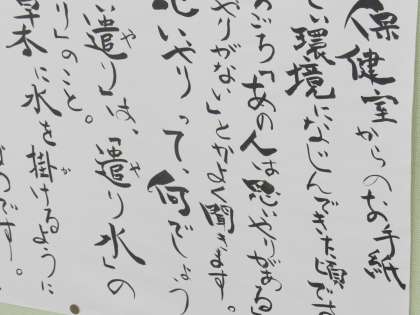 保健室からのお手紙
しい環境になじんできた頃です
のごろ「あの人は思いやりがある
やりがない」とかよく聞きます。
思いやりって、何でしょう
い遣り」は、「遣り水」の
り」のこと。
草木に水を掛けるように
のです。